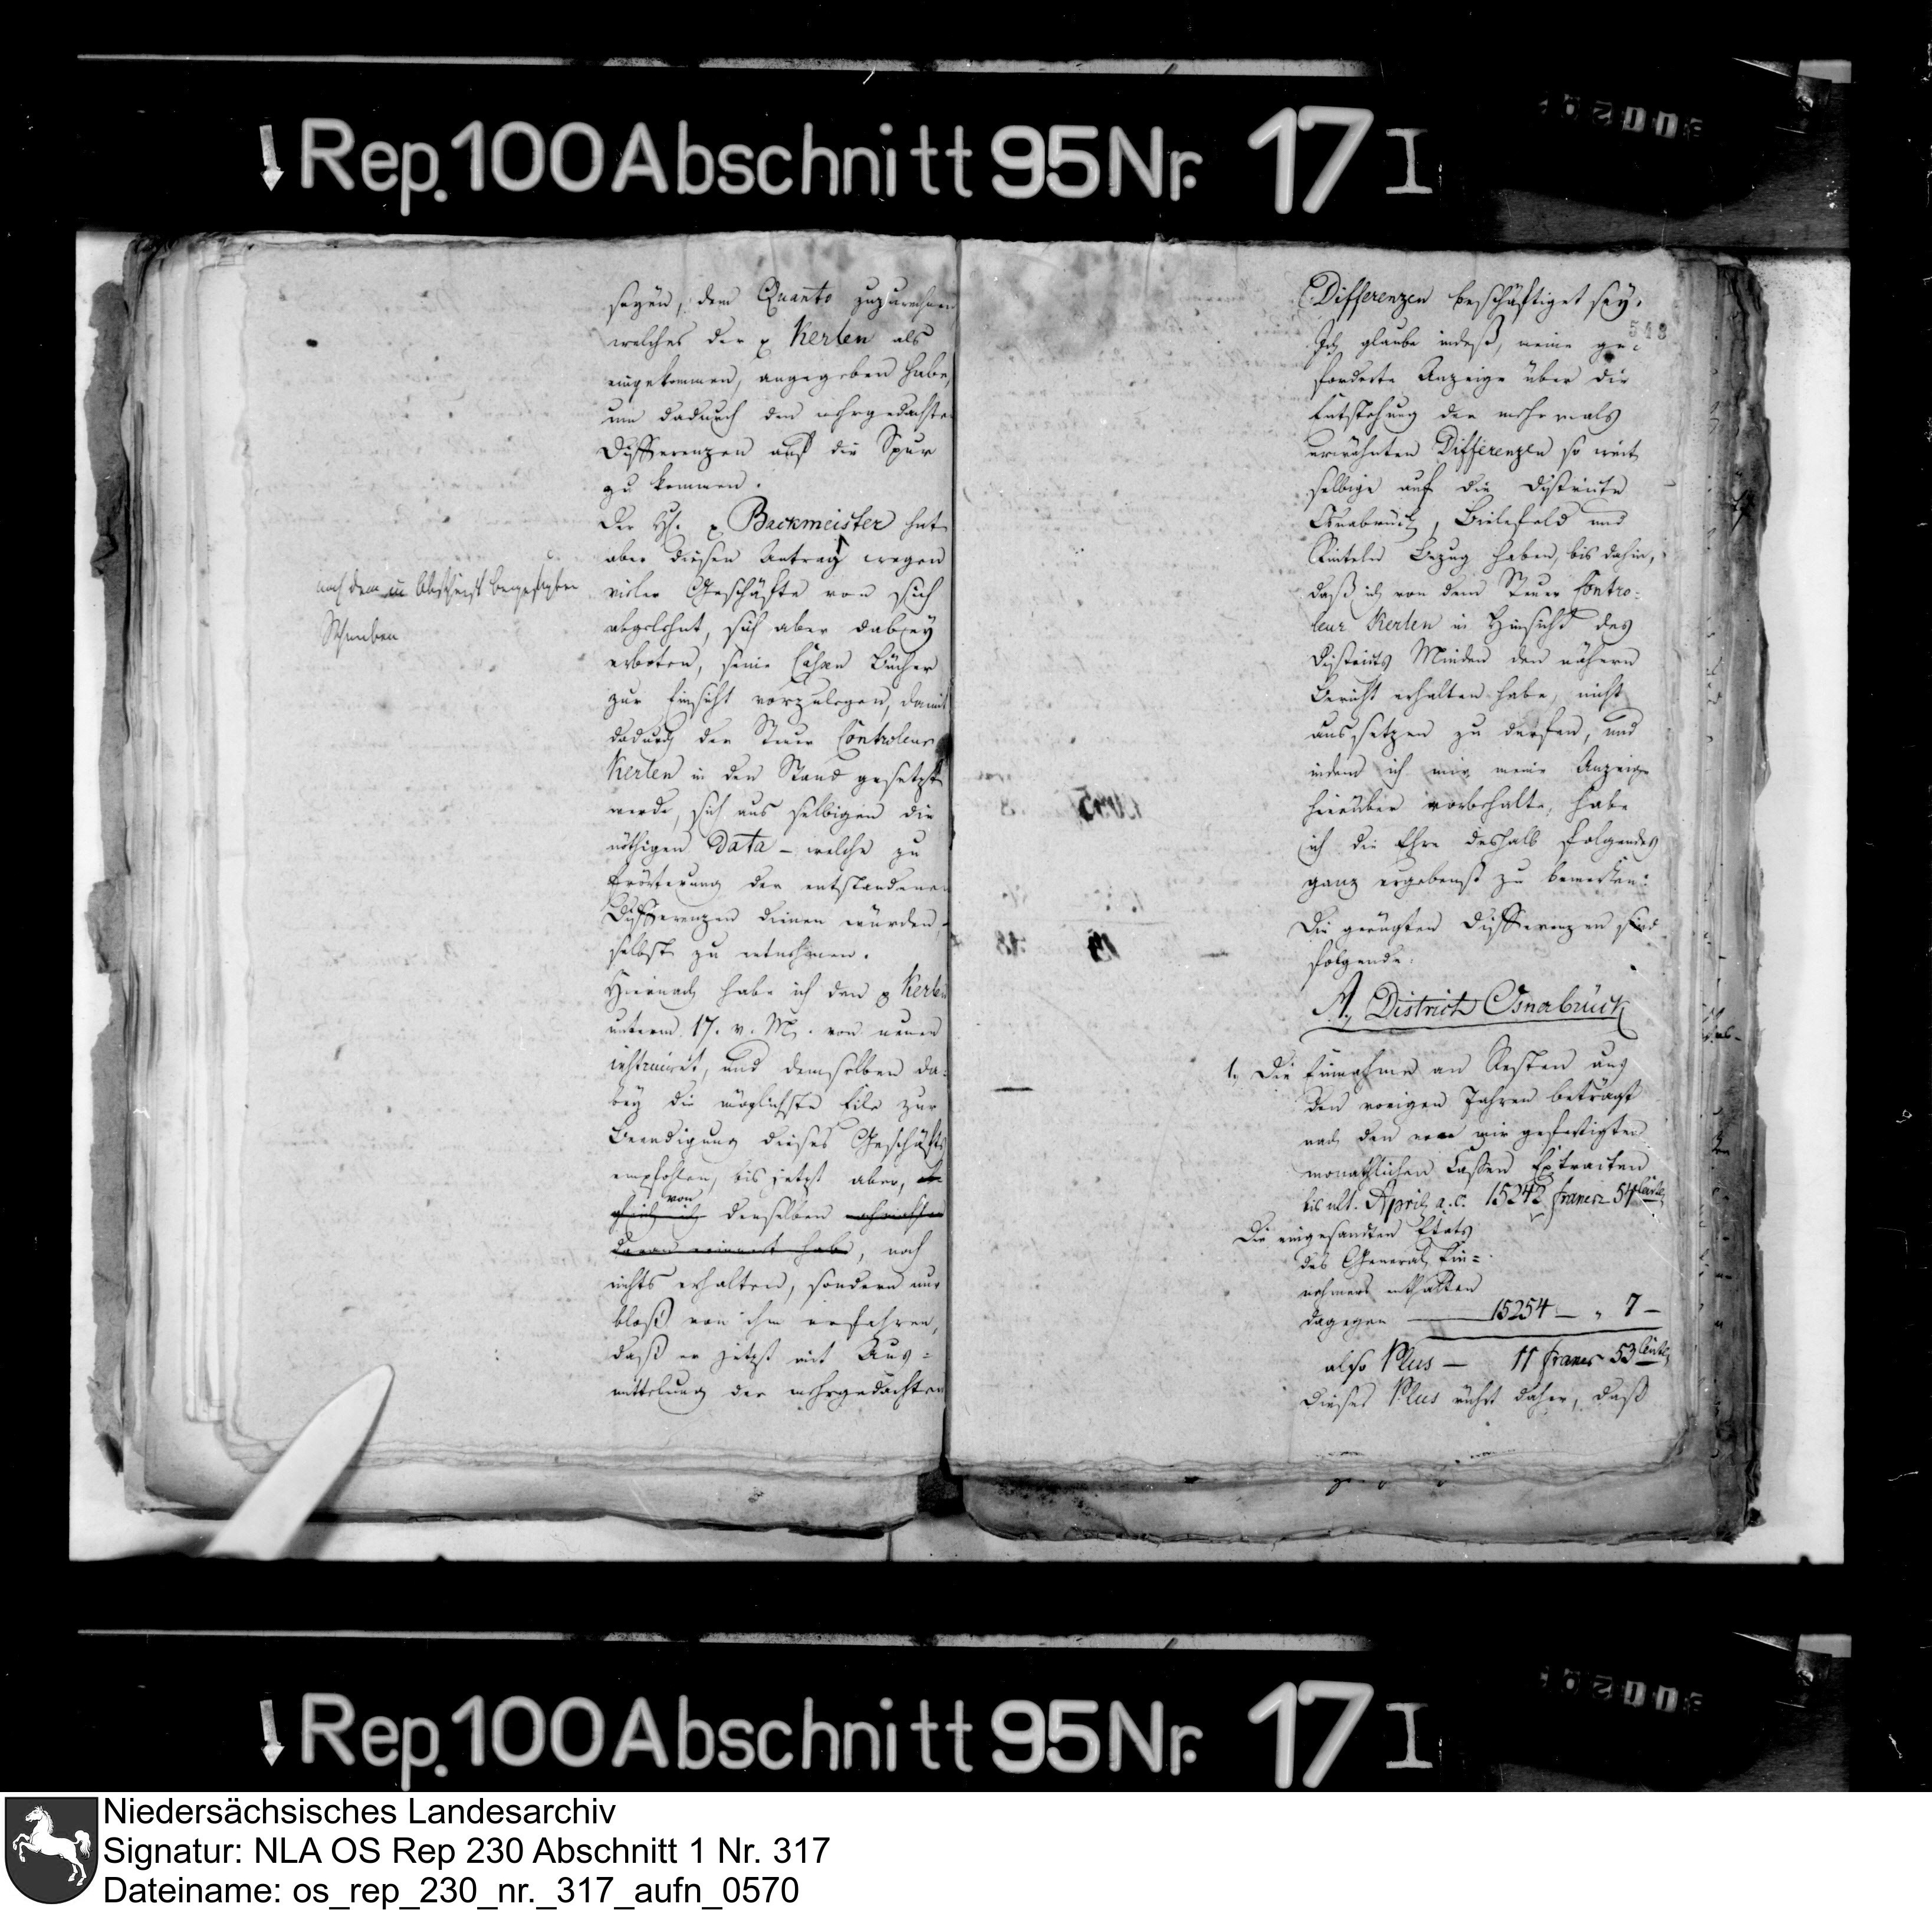 Rep. 100 Abschnitt 95 Nr. 17 I
seyen, dem Quanto zuzurechnen
welches der p Kerlen als
eingekommen, angegeben habe,
um dadurch den mehrgedachten
Differenzen auf die Spur
zu kommen.
Der H. p Backmeister hat
aber diesen Antrag wegen
vieler Geschäfte von sich
abgelehnt, sich aber dabey
erboten, seine Cassen Bücher
zur Einsicht vorzulegen, damit
dadurch der Steuer Controleur
Kerlen in den Stand gesetzt
werde, sich aus selbigen die
nöthigen Data – welche zu
Erörterung der entstandenen
Differenzen dienen würden, –
selbst zu entnehmen.
Hiernach habe ich den p Kerlen
unterm 17. v. M. von neuen
instruirt, und demselben da=
bey die möglichste Eile zur
Beendigung dieses Geschäfts
empfohlen, bis jetzt aber,
von
denselben
daran erinnert habe, noch
nichts erhalten, sondern nur
bloß von ihm erfahren,
daß er jetzt mit Aus=
mittelung der mehrgedachten
nach dem in Abschrift beygefügten
Schreiben
Differenzen beschäftiget sey.
543
Ich glaube indeß, meine ge=
forderte Anzeige über die
Entstehung der mehrmals
erwähnten Differenzen so weit
selbige auf die Districte
Osnabrück, Bielefeld und
Rinteln Bezug haben, bis dahin,
daß ich von dem Steuer Contro=
leur Kerlen in Hinsicht des
Districts Minden den nähern
Bericht erhalten habe, nicht
aussetzen zu dürfen, und
indem ich mir meine Anzeige
hierüber vorbehalte, habe
ich die Ehre deshalb folgendes
ganz ergebenst zu bemerken:
Die gerügten Differenzen sind
folgende:
A, District Osnabrück
1, Die Einnahme an Resten aus
den vorigen Jahren beträgt
nach den von mir gefertigten
monathlichen Cassen Extracten
bis ult. April a. c. 15242 francs 54 Cent
Die eingesandten Etats
des General Ein=
nehmers enthalten
dagegen — 15254 — " 7 —
also Plus — 11 francs 53 Cent
Dieses Plus rührt daher, daß
Rep. 100 Abschnitt 95 Nr. 17 I
Niedersächsisches Landesarchiv
Signatur: NLA OS Rep 230 Abschnitt 1 Nr. 317
Dateiname: os_rep_230_nr._317_aufn_0570